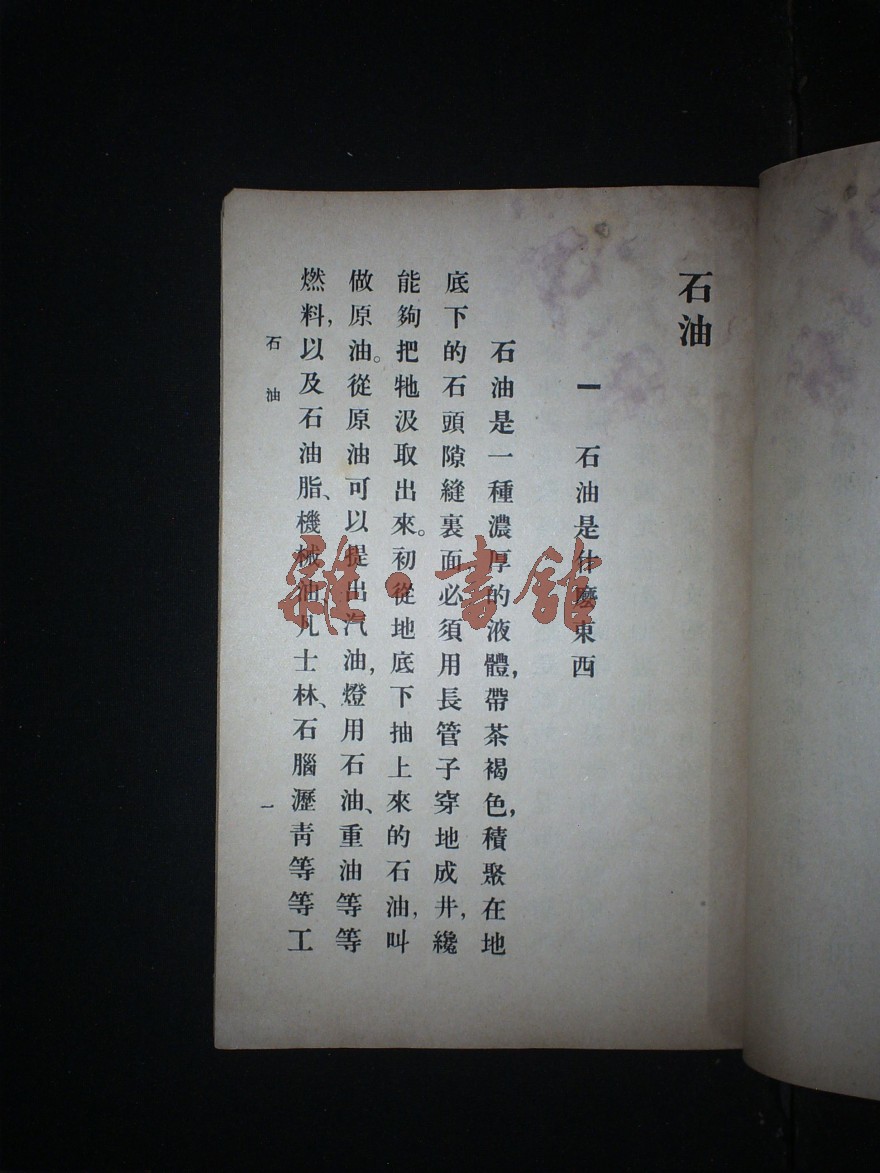 石油
一 石油是什麼東西
石油是一種濃厚的液體，帶茶褐色，積聚在地
底下的石頭隙縫裏面必須用長管子穿地成井，纔
能夠把牠汲取出來。初從地底下抽上來的石油，叫
做原油。從原油可以提出汽油，燈用石油、重油等等
燃料，以及石油脂、機械油、凡士林、石腦瀝青等等工
石油
一
雜·書館